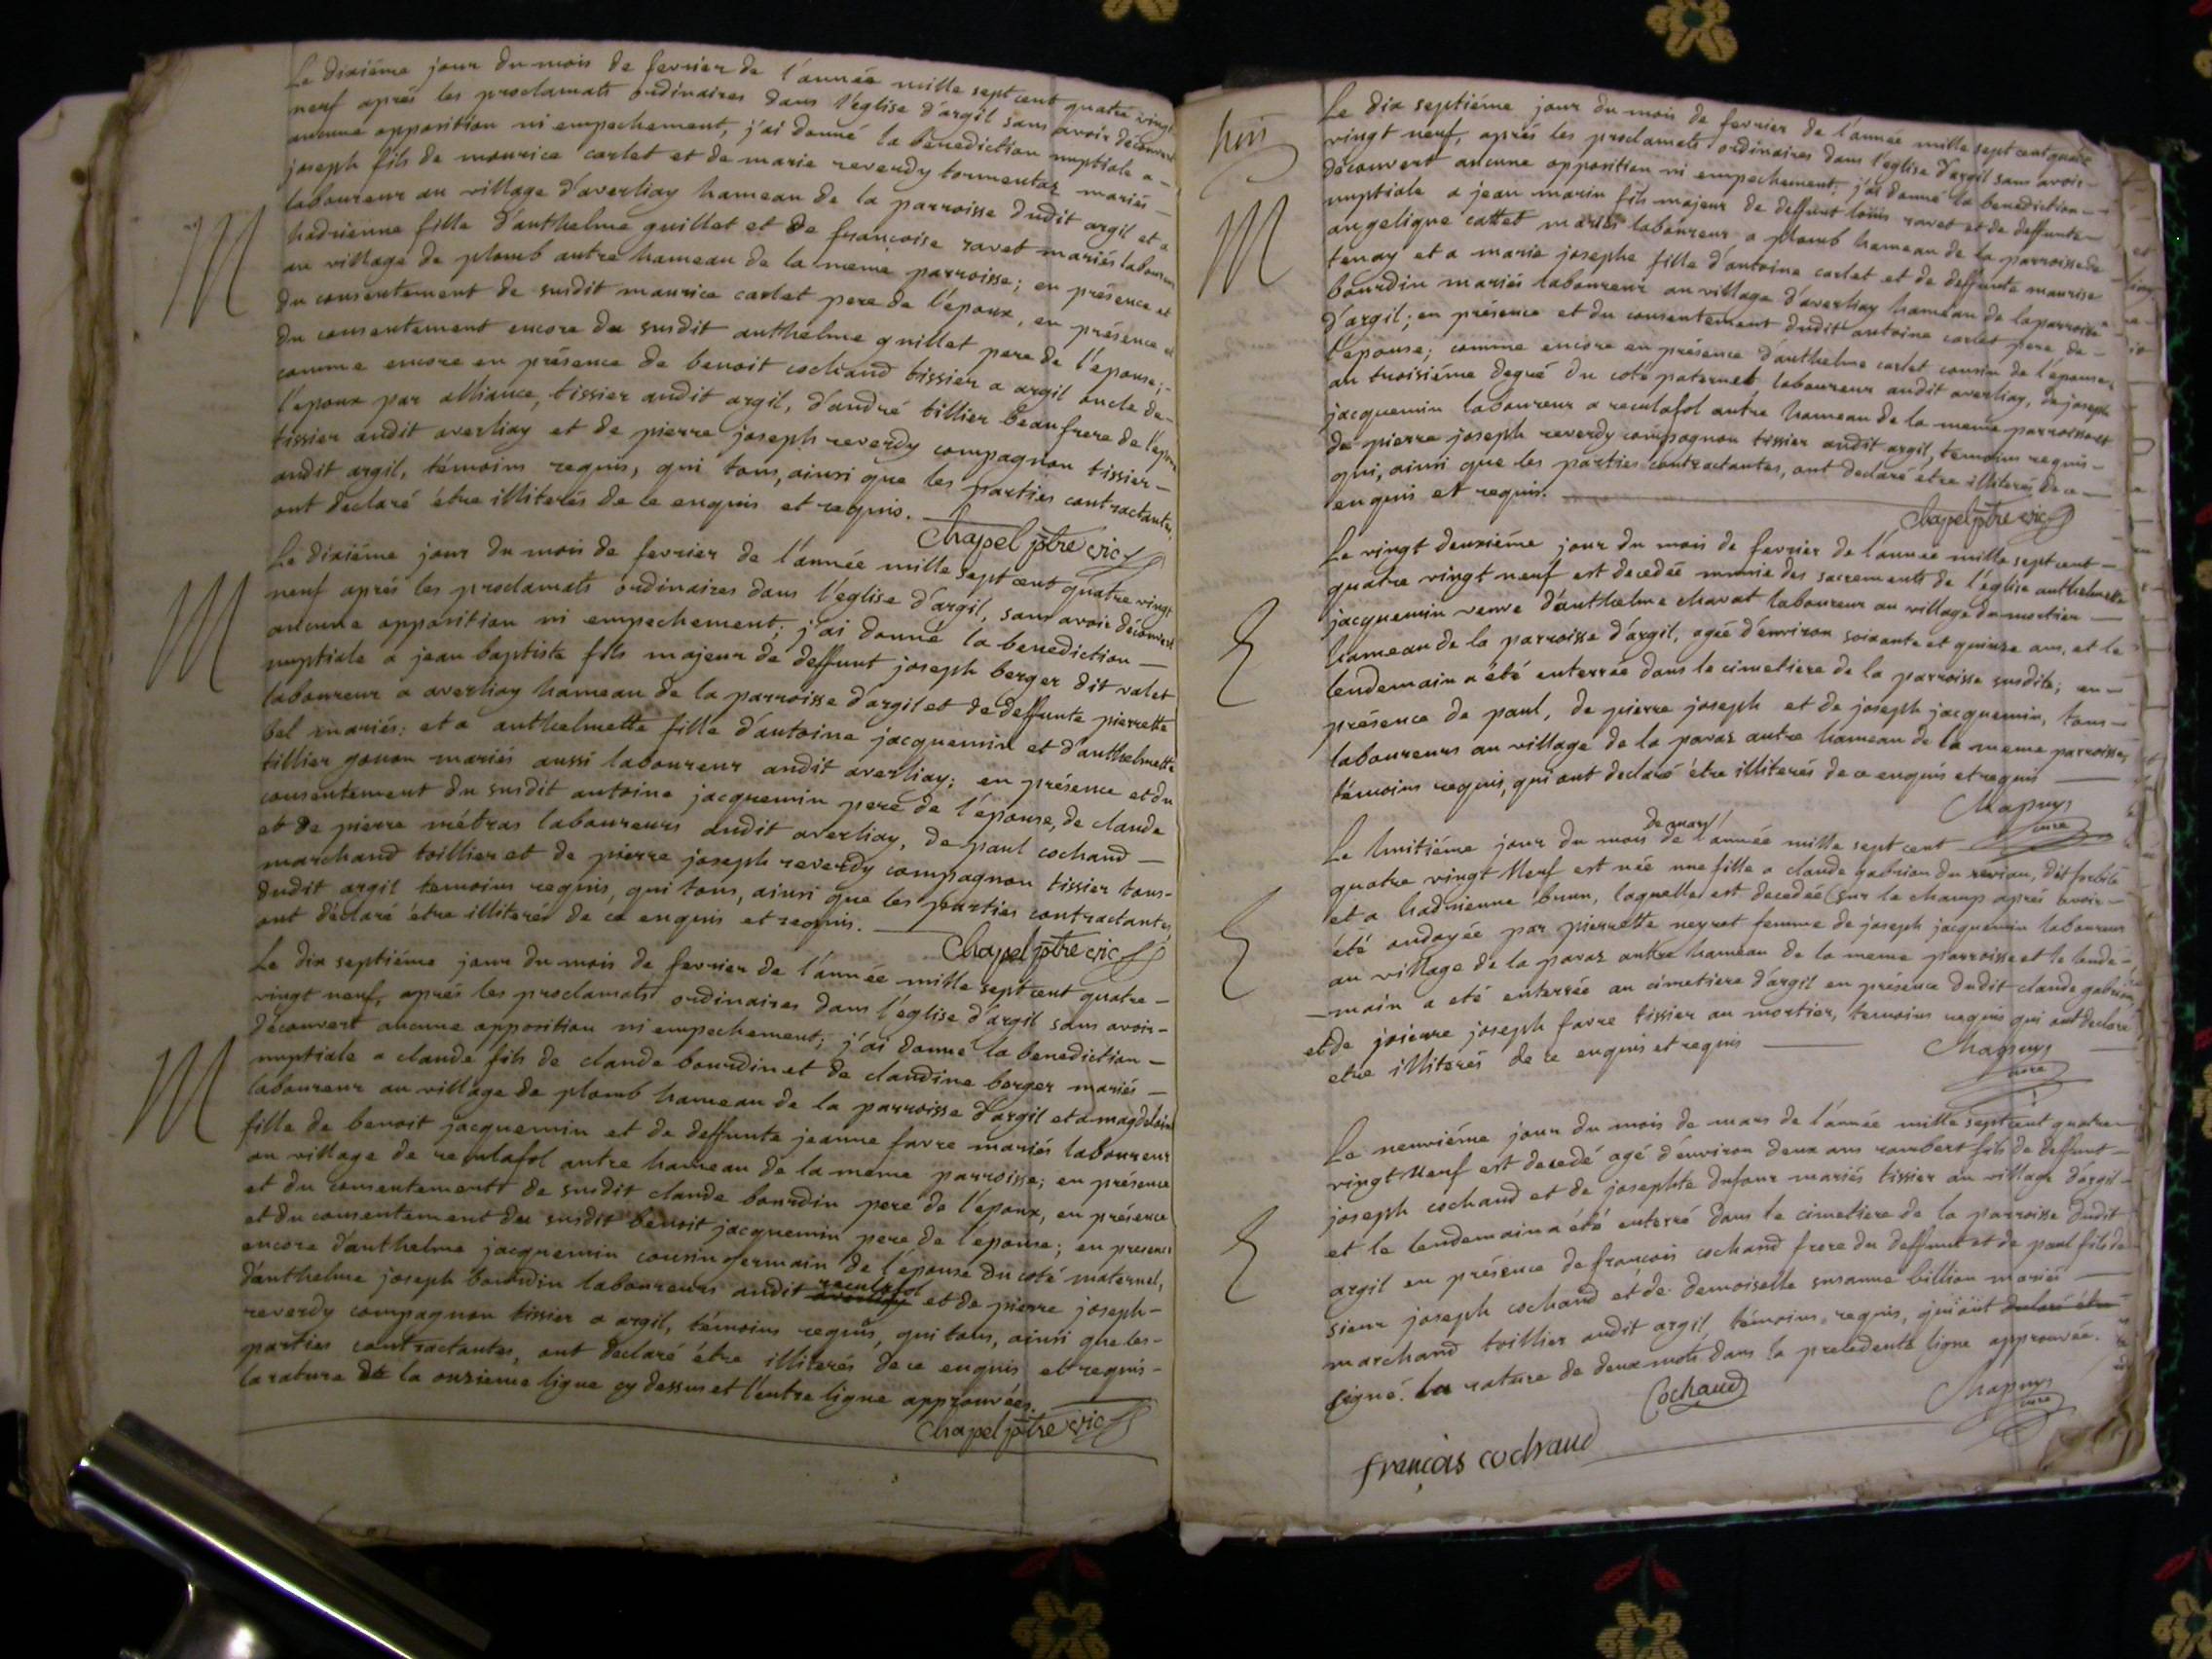 Le dixiéme jour du mois de fevrier de l'année mille sept cent quatre vingt
neuf aprés les proclamats ordinaires dans l'eglise d'argil sans avoir découvert
aucune opposition ni empechement, j'ai donné la benediction nuptiale a -
joseph fils de maurice carlet et de marie reverdy tormentaz mariés -
laboureur au village d'averliay hameau de la parroisse dudit argil et a
hadrienne fille d'anthelme guillet et de francoise ravet mariés laboureur
au village de plomb autre hameau de la meme parroisse; en présence et
du consentement de susdit maurice carlet pere de l'époux, en présence et
du consentement encore du susdit anthelme guillet pere de l'épouse; -
comme encore en présence de benoit cochand tissier a argil oncle de -
l'epoux par alliance, tissier audit argil, d'andré tillier beaufrere de l'époux
tissier audit averliay et de pierre joseph reverdy compagnon tissier -
audit argil, témoins requis, qui tous, ainsi que les parties contractantes,
ont declaré étre illiterés de ce enquis et requis.
Chapel ptre vic
M
Le dixiéme jour du mois de fevrier de l'année mille sept cent quatre vingt
neuf aprés les proclamats ordinaires dans l'eglise d'argil, sans avoir découvert
aucune opposition ni empechement; j'ai donné la benediction —
nuptiale a jean baptiste fils majeur de deffunt joseph berger dit valet
laboureur a averliay hameau de la parroisse d'argil et de deffunte pierrette
bel mariés; et a anthelmette fille d'antoine jacquemin et d'anthelmette
tillier gonon mariés aussi laboureur audit averliay; en présence et du
consentement du susdit antoine jacquemin pere de l'épouse, de claude
et de pierre métras laboureurs audit averliay, de paul cochand —
marchand toillier et de pierre joseph reverdy compagnon tissier tous -
dudit argil temoins requis, qui tous, ainsi que les parties contractantes,
ont déclaré étre illiterés de ce enquis et requis.
Chapel ptre vic
M
Le dix septiéme jour du mois de fevrier de l'année mille sept cent quatre -
vingt neuf, aprés les proclamats ordinaires dans l'église d'argil sans avoir -
découvert aucune opposition ni empechement; j'ai donné la benediction -
nuptiale a claude fils de claude bourdin et de claudine berger mariés -
laboureur au village de plomb hameau de la parroisse d'argil et a magdelaine
fille de benoit jacquemin et de deffunte jeanne favre mariés laboureur
au village de reculafol autre hameau de la meme parroisse; en présence
et du consentement de susdit claude bourdin pere de l'époux, en présence
et du consentement du susdit benoit jacquemin pere de l'epouse; en presence
encore d'anthelme jacquemin cousin germain de l'épouse du coté maternel,
d'anthelme joseph bourdin laboureurs audit averliay reculafol et de pierre joseph -
reverdy compagnon tissier a argil, témoins requis, qui tous, ainsi que les -
parties contractantes, ont declaré étre illiterés de ce enquis et requis -
la rature de la onzieme ligne cy dessus et l'entre ligne approuvées.
Chapel ptre vic
M
huit
Le dix septiéme jour du mois de fevrier de l'année mille sept cent quatre
vingt neuf, aprés les proclamats ordinaires dans l'eglise d'argil sans avoir -
découvert aucune opposition ni empechement; j'ai donné la benediction -
nuptiale a jean marin fils majeur de deffunt loüis ravet et de deffunte
angelique cattet mariés laboureur a plomb hameau de la parroisse de
tenay et a marie josephe fille d'antoine carlet et de deffunte maurise
bourdin mariés laboureur au village d'averliay hameau de la parroisse
d'argil; en présence et du consentement dudit antoine carlet pere de -
l'epouse; comme encore en présence d'anthelme carlet cousin de l'epouse,
au troisiéme degré du coté paternel laboureur audit averliay, de joseph
jacquemin laboureur a reculafol autre hameau de la meme parroisse et
de pierre joseph reverdy compagnon tissier audit argil, temoins requis -
qui, ainsi que les parties contractantes, ont declaré étre illiterés de ce -
enquis et requis.
Chapel ptre vic
M
Le vingt deuxiéme jour du mois de fevrier de l'année mille sept cent —
quatre vingt neuf est decedée munie des sacrements de l'église anthelmette
jacquemin veuve d'anthelme chavat laboureur au village du mortier —
hameau de la parroisse d'argil, agée d'environ soixante et quinze ans, et le
lendemain a été enterrée dans le cimetiere de la parroisse susdite; en -
présence de paul, de pierre joseph et de joseph jacquemin, tous —
laboureurs au village de la pavaz autre hameau de la meme parroisse,
témoins requis, qui ont declaré étre illiterés de ce enquis et requis
Chapuys
cure
Le huitiéme jour du mois de mars de l'année mille sept cent
quatre vingt Neuf est née une fille a claude gabrion du
et a hadrienne brun, laquelle est decedée sur le champ aprés avoir -
été ondoyée par pierrette neyret femme de joseph jacquemin laboureur
au village de la pavaz autre hameau de la meme parroisse et le lende -
- main a eté enterrée au cimetiere d'argil en présence dudit claude gabrion,
et de joseph favre tissier au mortier, temoins requis qui ont declaré
etre illiterés de ce enquis et requis
Chapuys
cure
Le neuviéme jour du mois de mars de l'année mille sept cent quatre
vingt Neuf est decedé agé d'environ deux ans rambert fils de deffunt —
joseph cochand et de josephte dufour mariés tissier au village d'argil -
et le lendemain a été enterré dans le cimetiere de la parroisse dudit
argil en présence de francois cochand frere du deffunt et de paul fils de
sieur joseph cochand et de demoiselle susanne billion mariés —
marchand toillier audit argil témoins, requis, qui ont declaré étre
signé. la rature de deux mots dans la precedente ligne approuvée.
Cochaud
Chapuys
cure
françois cochaud